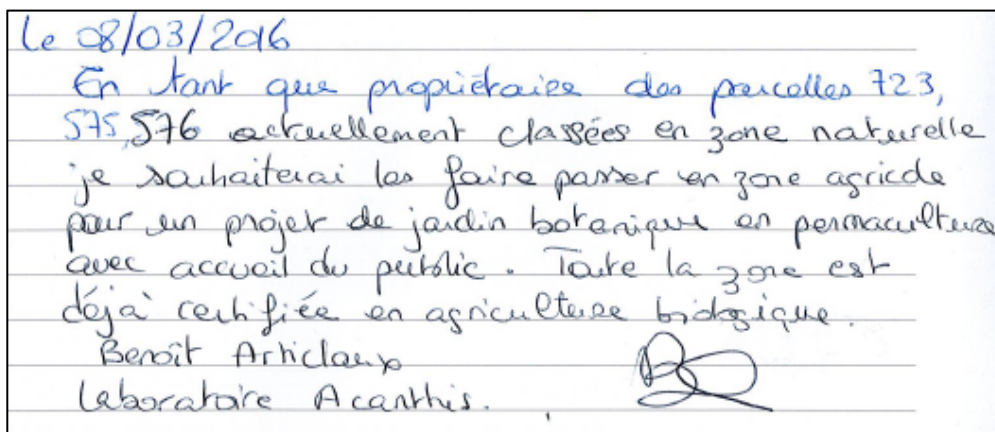 le 08/03/2016
En tant que propriétaire des parcelles 723,
575,576 actuellement classées en zone naturelle
je souhaiterai les faire passer en zone agricole
pour un projet de jardin botanique en permaculture
avec accueil du public. Toute la zone est
déjà certifiée en agriculture biologique.
Benoît Articlaux
Laboratoire Acanthis.